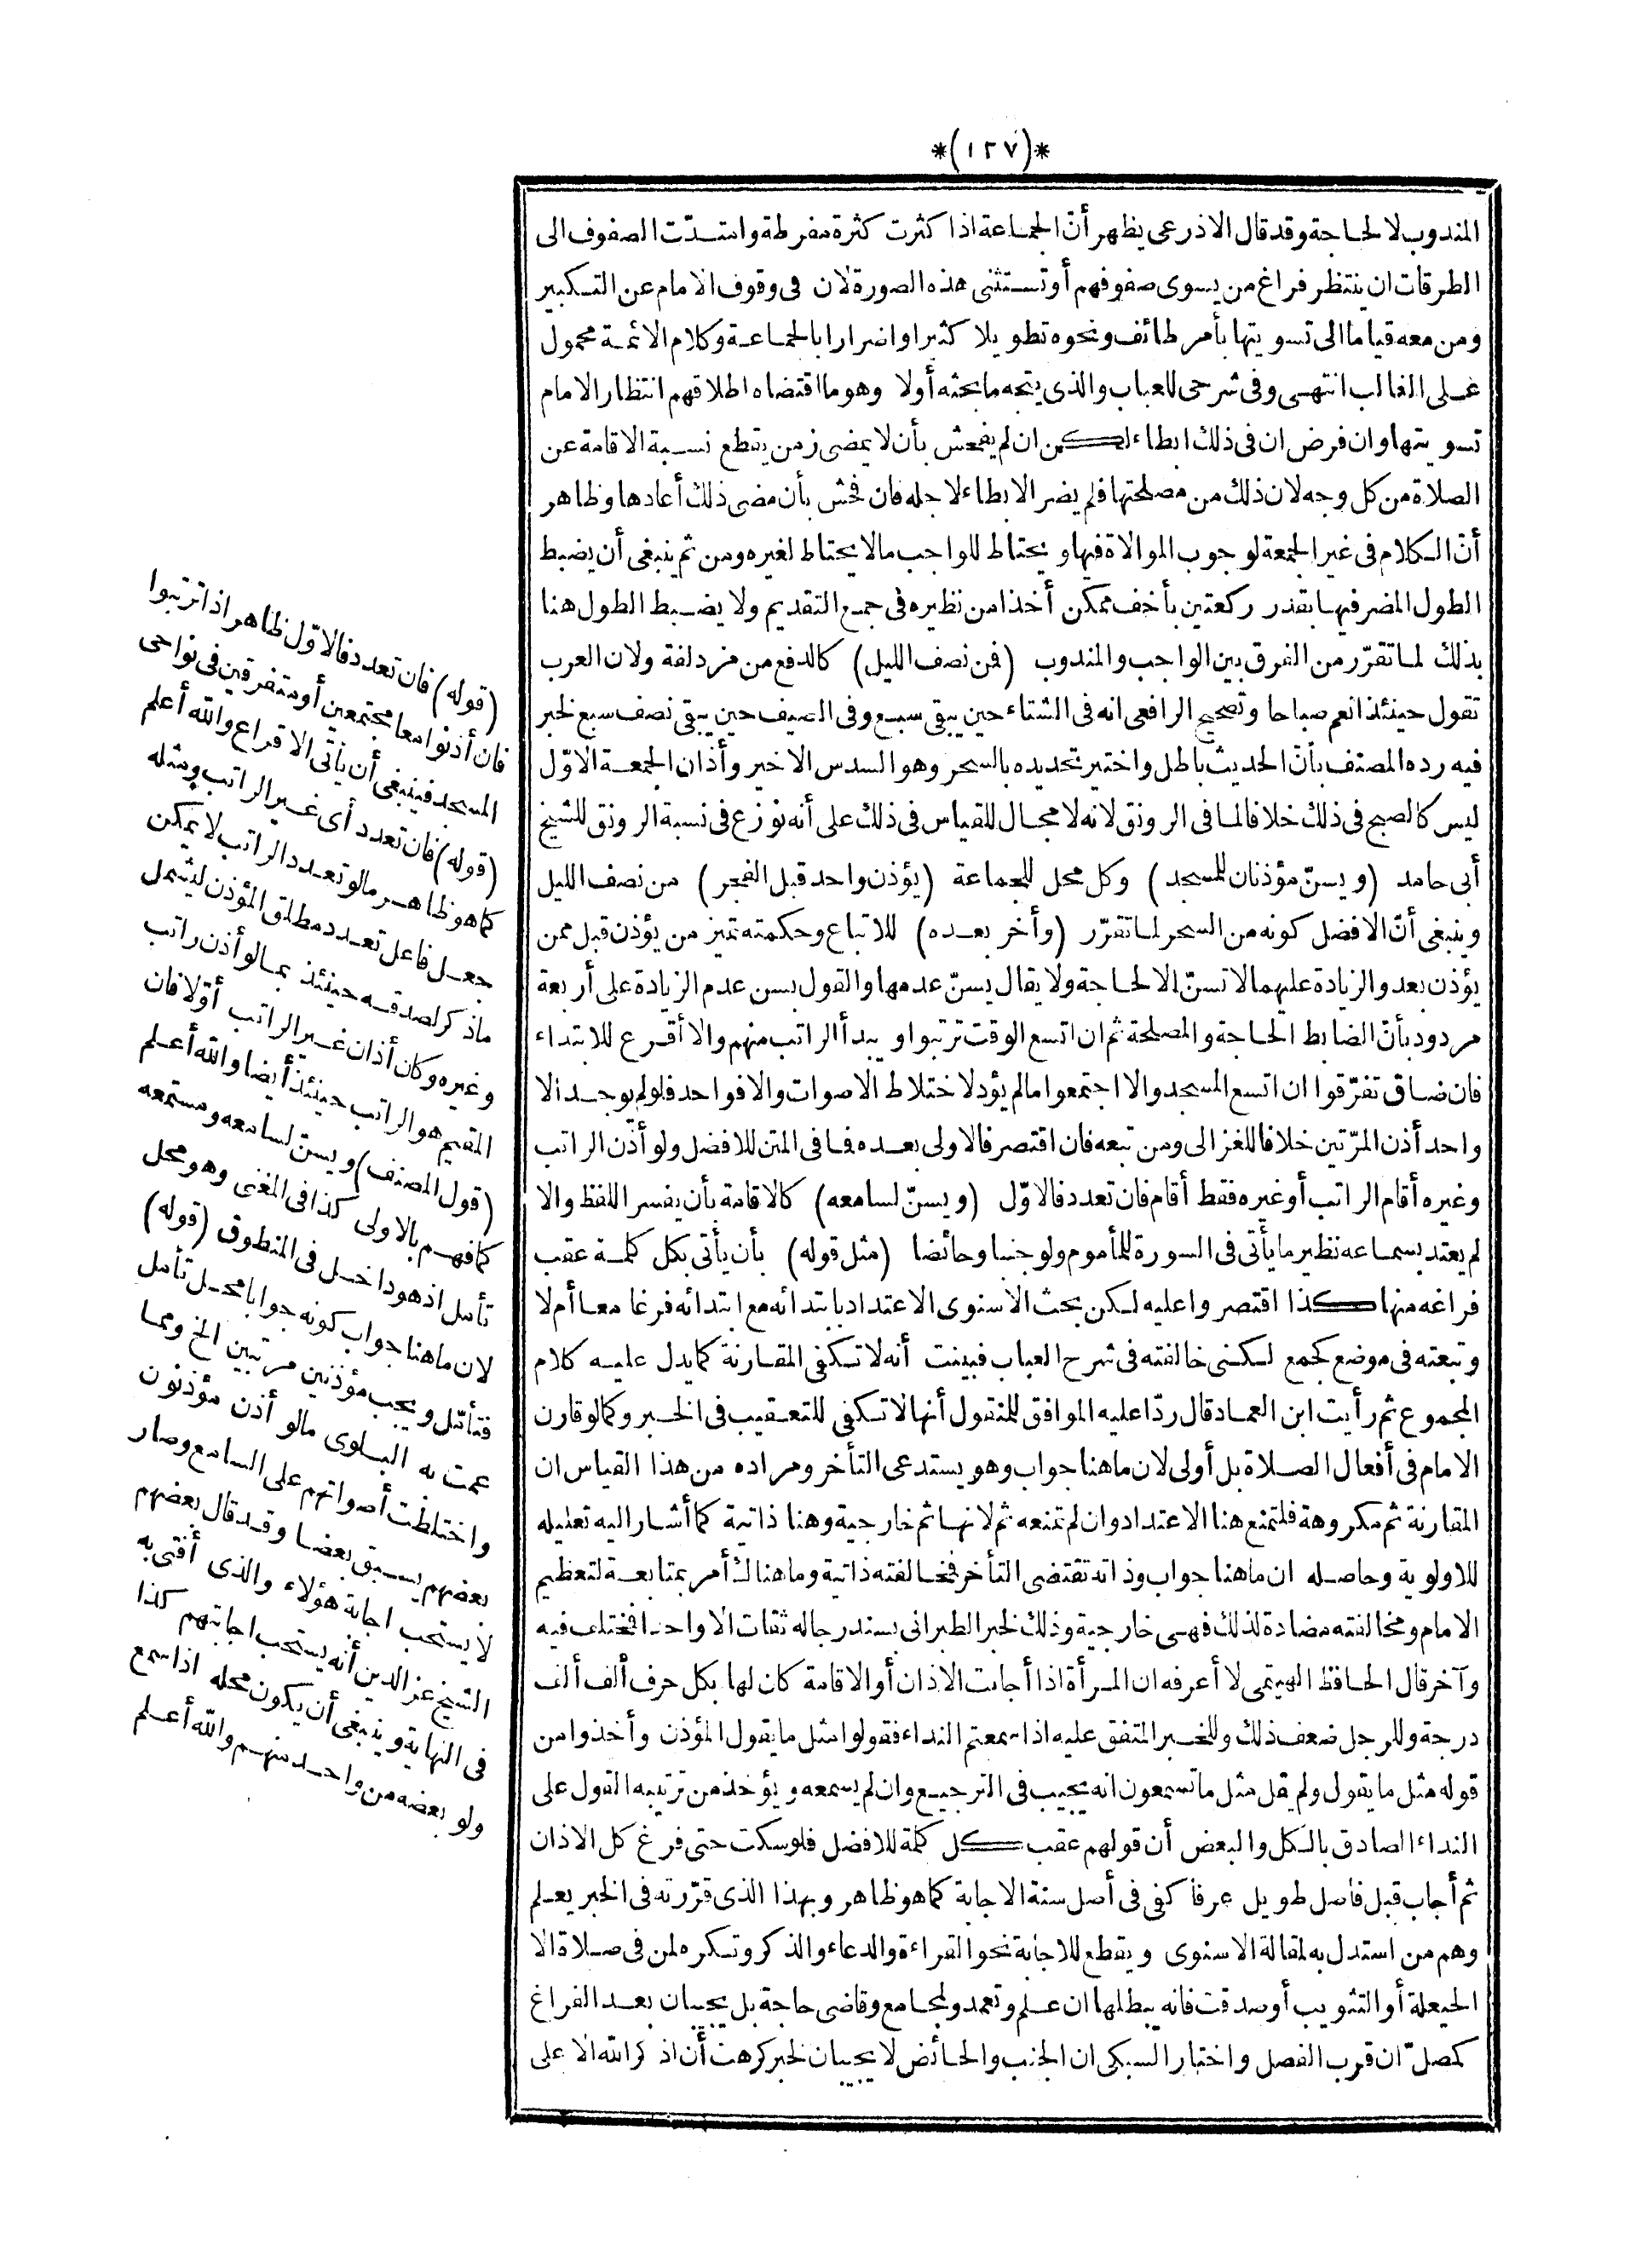 *(١٢٧)*
المندوب لا لحاجة وقد قال الاذرعى يظهر أنّ الجماعة اذا كثرت كثرة مفرطة وامتدّت الصفوف الى
الطرقات ان ينتظر فراغ من يسوى صفوفهم أو تستثنى هذه الصورة لان فى وقوف الامام عن التكبير
ومن معه قياما الى تسويتها بأمر طائف ونحوه تطويلا كثيرا واضرارا بالجماعة وكلام الائمة محمول
على الغالب انتهى وفى شرحى للعباب والذى يتجه ما بحثه أولا وهو ما اقتضاه اطلاقهم انتظار الامام
تسويتها وان فرض ان فى ذلك ابطاء لكن ان لم يفحش بأن لا يمضى زمن يقطع نسبة الاقامة عن
الصلاة من كل وجه لان ذلك من مصلحتها فلم يضر الابطاء لاجله فان فحش بأن مضى ذلك أعادها وظاهر
أنّ الكلام فى غير الجمعة لوجوب الموالاة فيها ويحتاط للواجب مالا يحتاط لغيره ومن ثم ينبغى أن يضبط
الطول المضر فيها بقدر ركعتين بأخف ممكن أخذا من نظيره فى جمع التقديم ولا يضبط الطول هنا
بذلك لما تقرّر من الفرق بين الواجب والمندوب (فمن نصف الليل) كالدفع من مزدلفة ولان العرب
تقول حينئذ انعم صباحا وتصحيح الرافعى انه فى الشتاء حين يبقى سبع وفى الصيف حين يبقى نصف سبع لخبر
فيه رده المصنف بأنّ الحديث باطل واختير تحديده بالسحر وهو السدس الاخير وأذان الجمعة الاوّل
ليس كالصبح فى ذلك خلافا لما فى الرونق لانه لا مجال للقياس فى ذلك على أنه نوزع فى نسبة الرونق للشيخ
أبى حامد (ويسنّ مؤذنان للمسجد) وكل محل للجماعة (يؤذن واحد قبل الفجر) من نصف الليل
وينبغى أنّ الافضل كونه من السحر لما تقرّر (وأخر بعده) للاتباع وحكمته تميز من يؤذن قبل ممن
يؤذن بعد والزيادة عليهما لا تسنّ الا لحاجة ولا يقال يسنّ عدمها والقول بسن عدم الزيادة على أربعة
مردود بأنّ الضابط الحاجة والمصلحة ثم ان اتسع الوقت ترتبوا ويبدأ الراتب منهم والا أقرع للابتداء
فان ضاق تفرّقوا ان اتسع المسجد والا اجتمعوا ما لم يؤد لاختلاط الاصوات والا فواحد فلو لم يوجد الا
واحد أذن المرّتين خلافا للغزالى ومن تبعه فان اقتصر فالاولى بعده فما فى المتن للافضل ولو أذن الراتب
وغيره أقام الراتب أو غيره فقط أقام فان تعدد فالاوّل (ويسنّ لسامعه) كالاقامة بأن يفسر اللفظ والا
لم يعتد بسماعه نظير ما يأتى فى السورة للمأموم ولو جنبا وحائضا (مثل قوله) بأن يأتى بكل كلمة عقب
فراغه منها كذا اقتصروا عليه لكن بحث الاسنوى الاعتداد بابتدائه مع ابتدائه فرغا معا أم لا
وتبعته فى موضع كجمع لكنى خالفته فى شرح العباب فبينت أنه لا تكفى المقارنة كما يدل عليه كلام
المجموع ثم رأيت ابن العماد قال ردّا عليه الموافق للمنقول أنها لا تكفى للتعقيب فى الخبر وكما لو قارن
الامام فى أفعال الصلاة بل أولى لان ما هنا جواب وهو يستدعى التأخر ومراده من هذا القياس ان
المقارنة ثم مكروهة فلتمنع هنا الاعتداد وان لم تمنعه ثم لانها ثم خارجية وهنا ذاتية كما أشار اليه تعليله
للاولوية وحاصله ان ما هنا جواب وذاته تقتضى التأخر فمخالفته ذاتية وما هناك أمر بمتابعة لتعظيم
الامام ومخالفته مضادة لذلك فهى خارجية وذلك لخبر الطبرانى بسند رجاله ثقات الا واحدا فمختلف فيه
وآخر قال الحافظ الهيتمى لا أعرفه ان المرأة اذا أجابت الاذان أو الاقامة كان لها بكل حرف ألف ألف
درجة وللرجل ضعف ذلك وللخبر المتفق عليه اذا سمعتم النداء فقولوا مثل ما يقول المؤذن وأخذوا من
قوله مثل ما يقول ولم يقل مثل ما تسمعون انه يجيب فى الترجيع وان لم يسمعه ويؤخذ من ترتيبه القول على
النداء الصادق بالكل والبعض أن قولهم عقب كل كلمة للافضل فلو سكت حتى فرغ كل الاذان
ثم أجاب قبل فاصل طويل عرفا كفى فى أصل سنة الاجابة كما هو ظاهر وبهذا الذى قرّرته فى الخبر يعلم
وهم من استدل به لمقالة الاسنوى ويقطع للاجابة نحو القراءة والدعاء والذكر وتكره لمن فى صلاة الا
الحيعلة أو التثويب أو صدقت فانه يبطلها ان علم وتعمد ولمجامع وقاضى حاجة بل يجيبان بعد الفراغ
كمصلّ ان قرب الفصل واختار السبكى ان الجنب والحائض لا يجيبان لخبر كرهت أن اذكر الله الا على
(قوله) فان تعدد فالاوّل ظاهر اذا ترتبوا
فان أذنوا معا مجتمعين أو متفرقين فى نواحى
المسجد فينبغى أن يأتى الاقراع والله أعلم
(قوله) فان تعدد أى غير الراتب ومثله
كما هو ظاهر مالو تعدد الراتب لا يمكن
جعل فاعل تعدد مطلق المؤذن ليشمل
ماذكر لصدقه حينئذ بمالو أذن راتب
وغيره وكان أذان غير الراتب أوّلا فان
المقيم هو الراتب حينئذ أيضا والله أعلم
(قول المصنف) ويسنّ لسامعه ومستمعه
كما فهم بالاولى كذا فى المغنى وهو محل
تأمل اذ هو داخل فى المنطوق (قوله)
لان ما هنا جواب كونه جوابا محل تأمل
فتأمّل ويجيب مؤذنين مرتبين الخ ومما
عمت به البلوى مالو أذن مؤذنون
واختلطت أصواتهم على السامع وصار
بعضهم يسبق بعضا وقد قال بعضهم
لا يستحب اجابة هؤلاء والذى أفتى به
الشيخ عز الدين أنه يستحب اجابتهم كذا
فى النهاية وينبغى أن يكون محله اذا سمع
ولو بعضه من واحد منهم والله أعلم